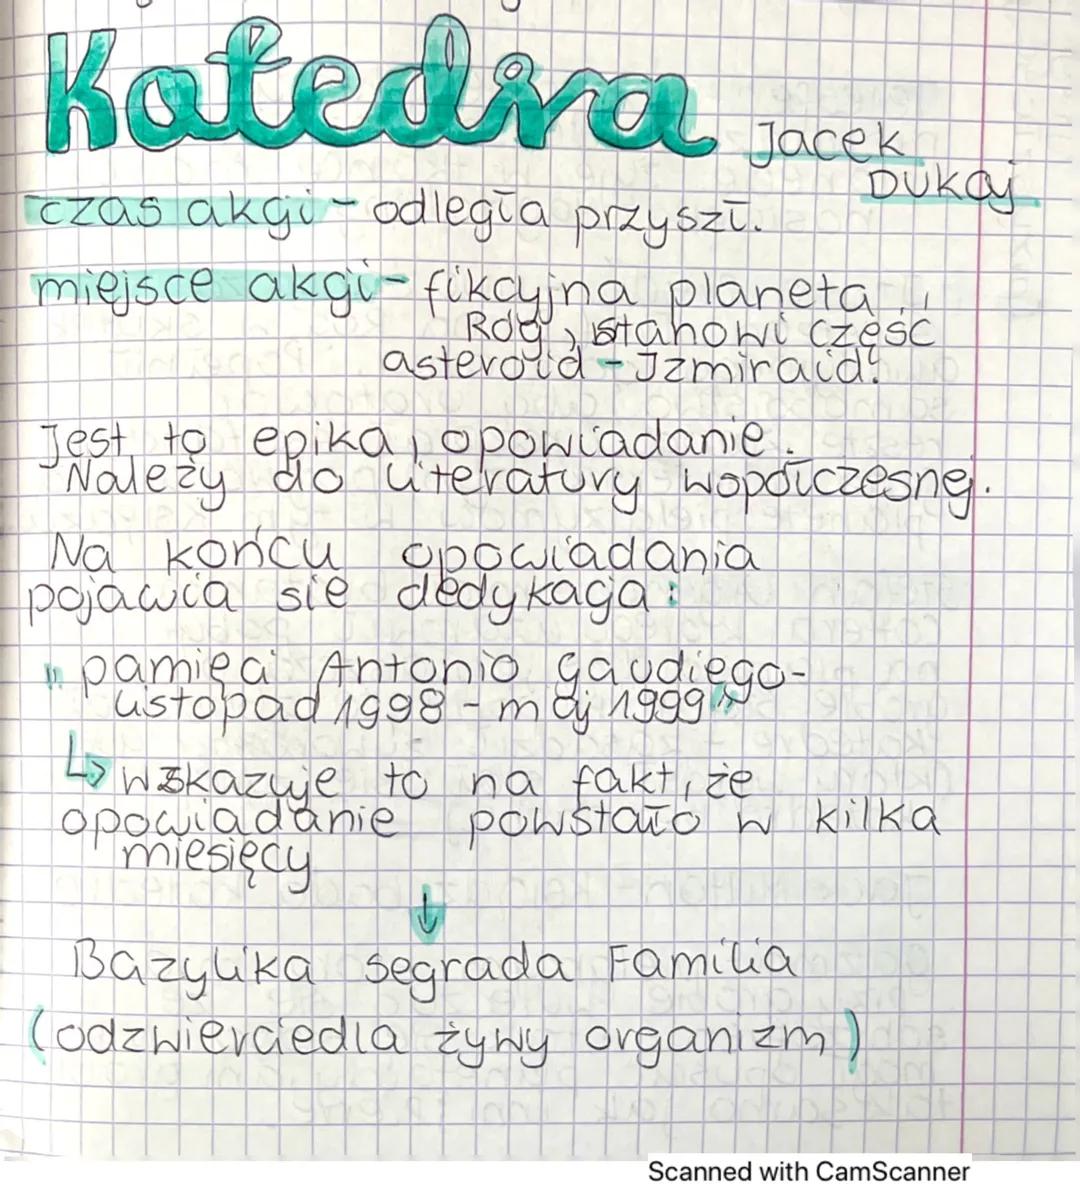 Katedra
Jacek
Dukaj
czas akcji - odległa przyszł.
miejsce akcji - fikcyjna planeta
Róg, stanowi część
asteroid - Izmiraid!
Jest to epika, opowiadanie.
Należy do literatury wopółczesnej.
Na końcu opowiadania
pojawia sie dedykacja:
"pamięci Antonio gaudiego-
listopad 1998 - maj 1999"
↳ wskazuje to na fakt, że
opowiadanie powstało w kilka
miesięcy
↓
Bazylika segrada Familia
(odzwierciedla żywy organizm)
Scanned with CamScanner